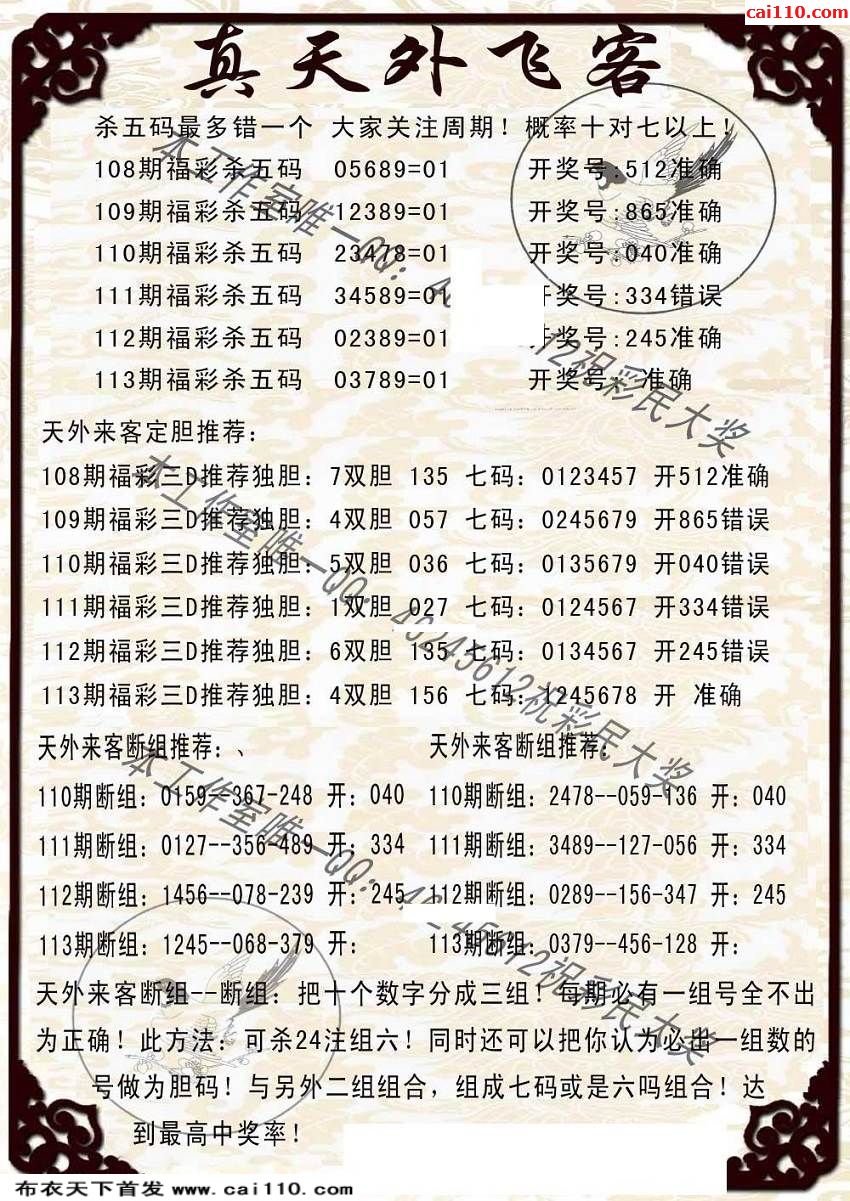 cai110.com
真天外飞客
杀五码最多错一个 大家关注周期！概率十对七以上！
108期福彩杀五码 05689=01 开奖号:512准确
109期福彩杀五码 12389=01 开奖号:865准确
110期福彩杀五码 23478=01 开奖号:040准确
111期福彩杀五码 34589=01 开奖号:334错误
112期福彩杀五码 02389=01 开奖号:245准确
113期福彩杀五码 03789=01 开奖号: 准确
天外来客定胆推荐：
108期福彩三D推荐独胆：7双胆 135 七码：0123457 开512准确
109期福彩三D推荐独胆：4双胆 057 七码：0245679 开865错误
110期福彩三D推荐独胆：5双胆 036 七码：0135679 开040错误
111期福彩三D推荐独胆：1双胆 027 七码：0124567 开334错误
112期福彩三D推荐独胆：6双胆 135 七码：0134567 开245错误
113期福彩三D推荐独胆：4双胆 156 七码：1245678 开 准确
天外来客断组推荐：、
110期断组：0159--367-248 开：040
111期断组：0127--356-489 开：334
112期断组：1456--078-239 开：245
113期断组：1245--068-379 开：
天外来客断组推荐：
110期断组：2478--059-136 开：040
111期断组：3489--127-056 开：334
112期断组：0289--156-347 开：245
113期断组：0379--456-128 开：
天外来客断组--断组：把十个数字分成三组！每期必有一组号全不出
为正确！此方法：可杀24注组六！同时还可以把你认为必出一组数的
号做为胆码！与另外二组组合，组成七码或是六吗组合！达
到最高中奖率！
本工作室唯一QQ: 12祝彩民大奖
本工作室唯一QQ: 祝彩民大奖
本工作室唯一QQ: 祝彩民大奖
布衣天下首发 www.cai110.com